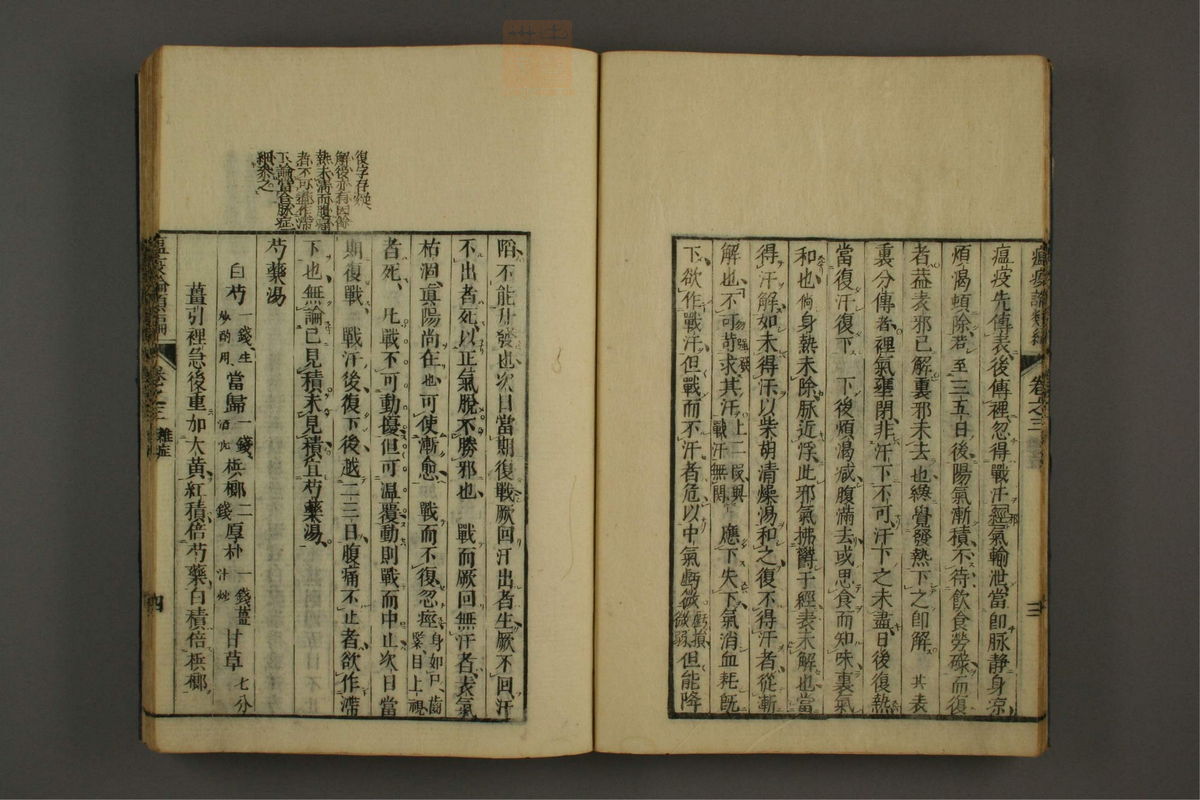 瘟疫論類編 卷之三 三
瘟疫先傳表後傳裡忽得戰汗經氣輸泄當卽脉静身凉
煩渴頓除若至三五日後陽氣漸積不待飲食勞碌而復
者葢表邪已解裏邪未去也纔覺發熱下之卽解其表
裏分傳者裡氣壅閉非汗下不可汗下之未盡日後復熱
當復汗復下 下後煩渴減腹滿去或思食而知味裏氣
和也倘身熱未除脉近浮此邪氣拂欝于經表未解也當
得汗解如未得汗以柴胡清燥湯和之復不得汗者從漸
解也不可苛求其汗上二段與戰汗無關 應下失下氣消血耗旣
下欲作戰汗但戰而不汗者危以中氣虧微但能降
陷不能升發也次日當期復戰厥回汗出者生厥不回汗
不出者死以正氣脫不勝邪也 戰而厥回無汗者表氣
枯涸眞陽尚在也可使漸愈 戰而不復忽痙身如尸齒緊目上視
者死 凡戰不可動擾但可温覆動則戰而中止次日當
期復戰 戰汗後復下後越二三日腹痛不止者欲作滯
下也無論已見積未見積宜芍藥湯
復字存疑
解後亦有因餘
熱未清而腹痛
者不可遽作滯
下論當合脉症
細參之
芍藥湯
白芍一錢生 當歸一錢 檳榔二錢 厚朴一錢薑汁炒 甘草七分
薑引裡急後重加大黄紅積倍芍藥白積倍檳榔
卷之三 雜症 四